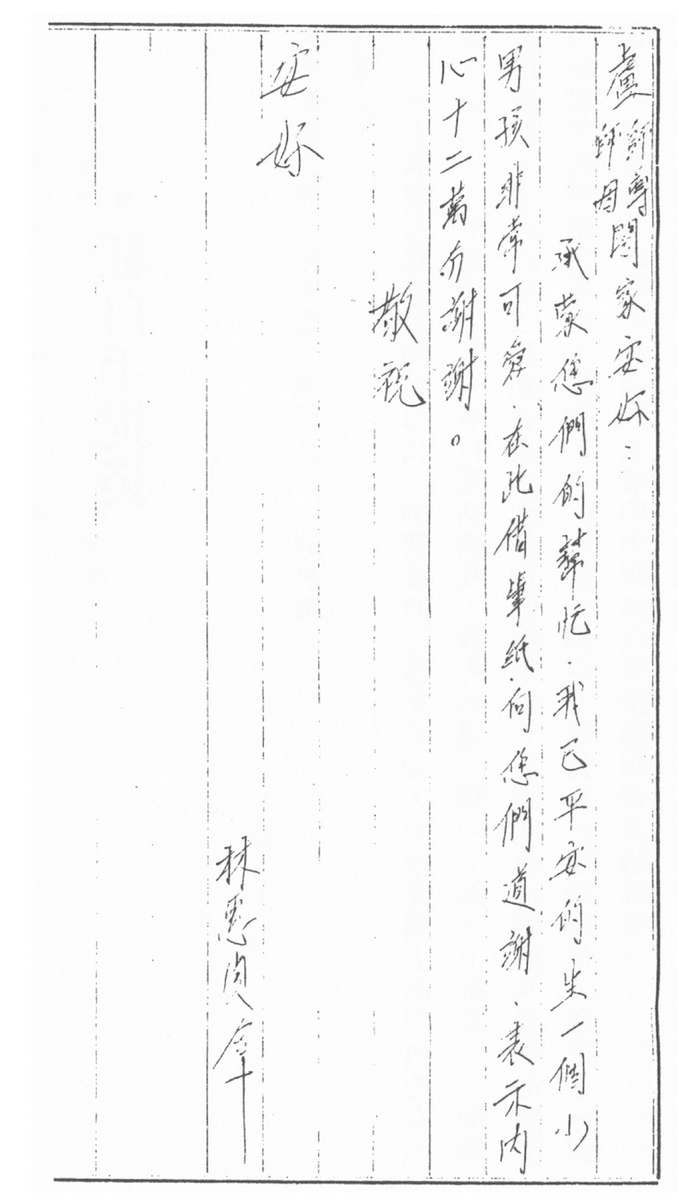 盧師尊師母閤家安好：
承蒙您們的幫忙．我已平安的生一個小
男孩非常可愛．在此借筆紙向您們道謝．表示內
心十二萬分謝謝。
敬祝
安好
林惠貞合十